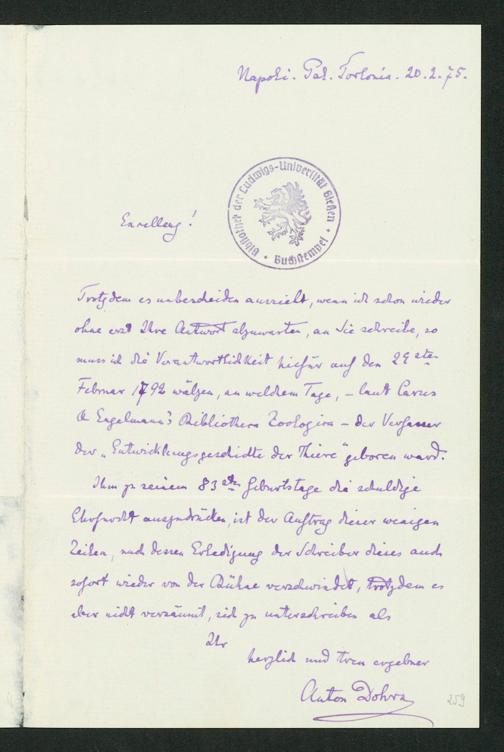 Napoli. Pal. Torlonia. 20.2.75.
Bibliothek der Ludwigs-Universität Gießen
• Buchstempel •
Excellenz!
Trotzdem es unbescheiden aussieht, wenn ich schon wieder
ohne erst Ihre Antwort abzuwarten, an Sie schreibe, so
muss ich die Verantwortlichkeit hiefür auf den 29sten
Februar 1792 wälzen, an welchem Tage, – laut Carus
& Engelmann's Bibliotheca Zoologica – der Verfasser
der „Entwicklungsgeschichte der Thiere" geboren ward.
Ihm zu seinem 83sten Geburtstage die schuldige
Ehrfurcht auszudrücken, ist der Auftrag dieser wenigen
Zeilen, nach dessen Erledigung der Schreiber dieses auch
sofort wieder von der Bühne verschwindet, trotzdem es
aber nicht versäumt, sich zu unterschreiben als
Ihr
herzlich und treu ergebner
Anton Dohrn
259